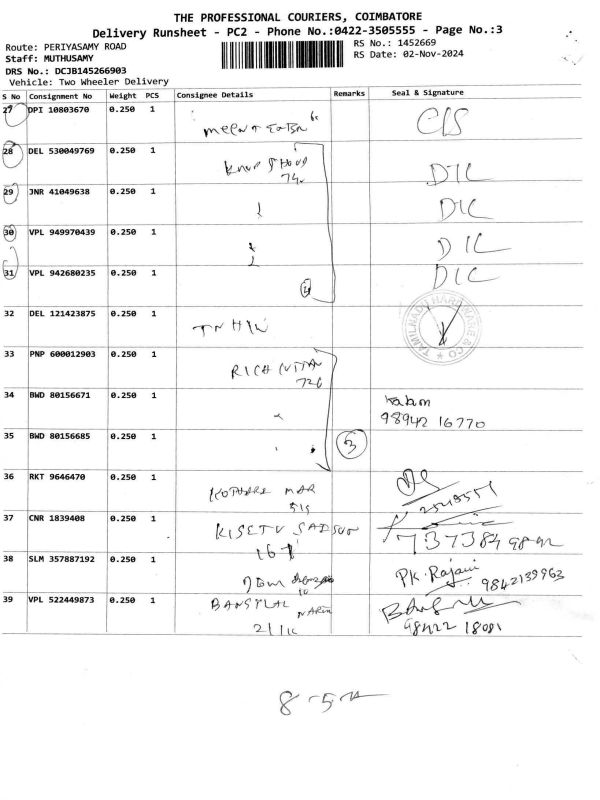 THE PROFESSIONAL COURIERS, COIMBATORE
Delivery Runsheet - PC2 - Phone No.:0422-3505555 - Page No.:3
Route: PERIYASAMY ROAD
RS No.: 1452669
Staff: MUTHUSAMY
RS Date: 02-Nov-2024
DRS No.: DCJB145266903
Vehicle: Two Wheeler Delivery
S No Consignment No Weight PCS Consignee Details Remarks Seal & Signature
27 DPI 10803670 0.250 1
28 DEL 530049769 0.250 1 DIC
29 JNR 41049638 0.250 1 DIC
30 VPL 949970439 0.250 1 DIC
31 VPL 942680235 0.250 1 4 DIC
32 DEL 121423875 0.250 1 TNHW TAMILNADU HARDWARE & CO
33 PNP 600012903 0.250 1 RICH
726
34 BWD 80156671 0.250 1
98942 16770
35 BWD 80156685 0.250 1 3
36 RKT 9646470 0.250 1
37 CNR 1839408 0.250 1
167 737384 9842
38 SLM 357887192 0.250 1 PK. Rajani 9842139963
39 VPL 522449873 0.250 1 BANSYLAL
98422 18081